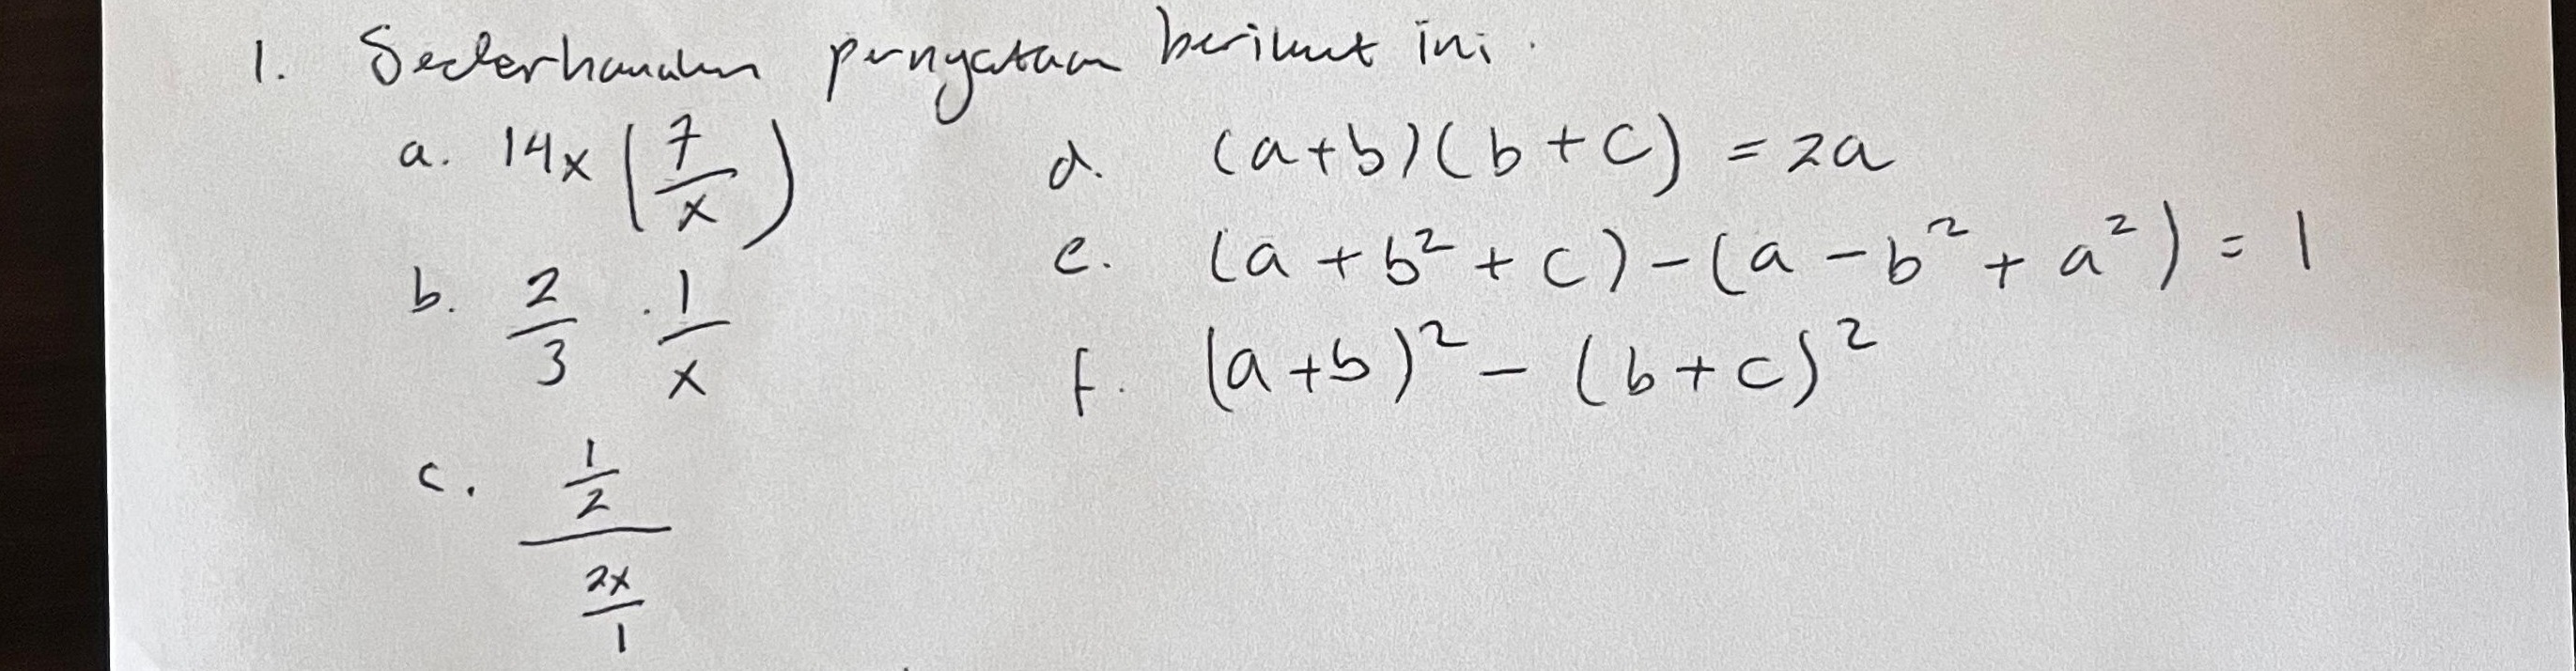 1. Sederhanakan pernyataan berikut ini.
a. 14x (7/x)
b. 2/3 · 1/x
c. (1/2)/(2x/1)
d. (a+b)(b+c) = 2a
e. (a + b² + c) - (a - b² + a²) = 1
f. (a+b)² - (b+c)²